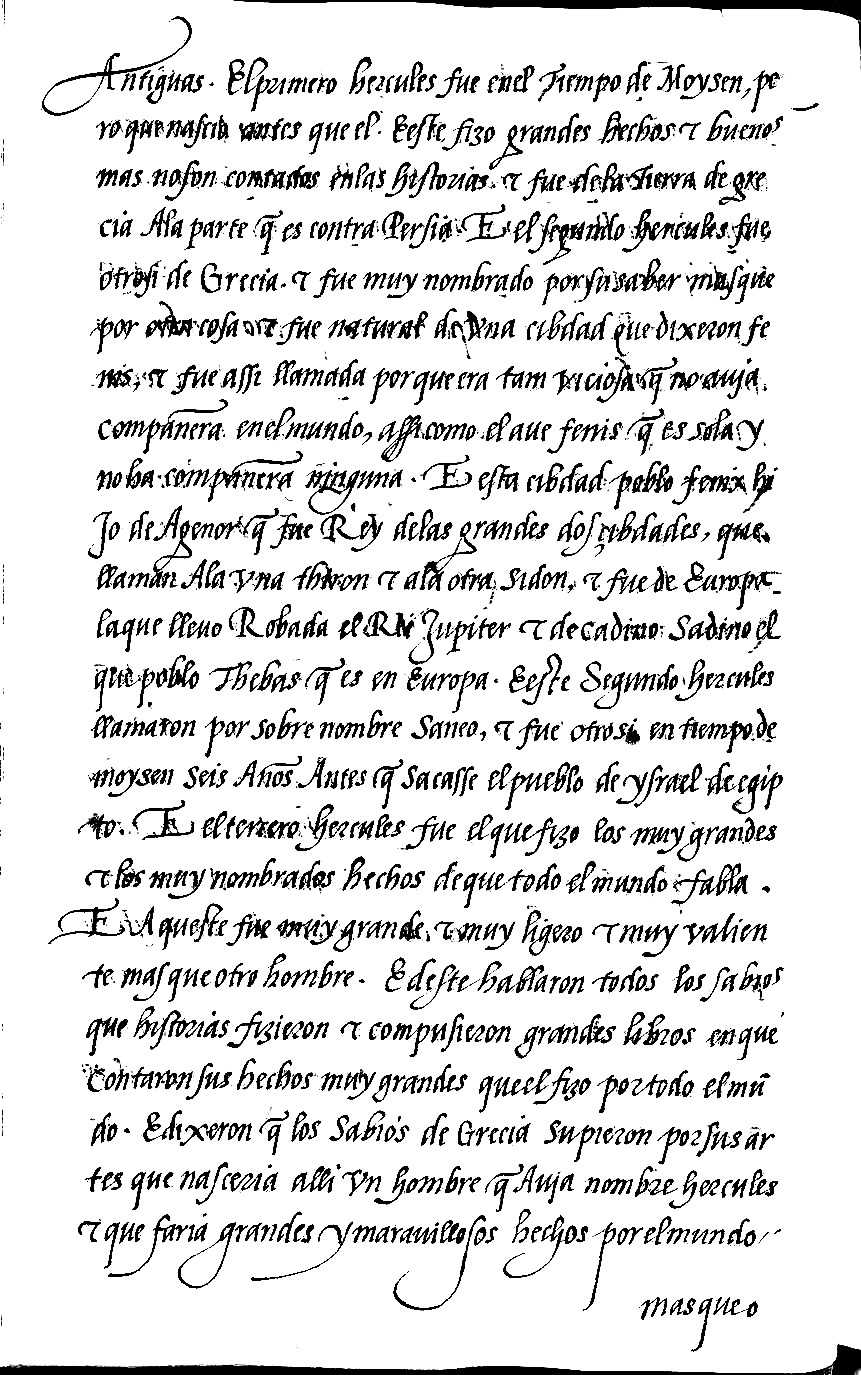 Antiguas. El primero hercules fue enel Tiempo de Moysen, pe
ro que nascio antes que el. E este fizo grandes hechos ⁊ buenos
mas no son contados enlas historias. ⁊ fue dela Tierra de gre
cia Ala parte q̃ es contra Persia. E el segundo hercules fue
otrosi de Grecia. ⁊ fue muy nombrado por su saber mas que
por otra cosa ⁊ fue natural de vna cibdad que dixeron fe
nis, ⁊ fue assi llamada por que era tam viciosa q̃ no auja
compañera enel mundo, assi como el aue fenis q̃ es sola y
no ha compañera ninguna. E esta cibdad poblo fenix hi
Jo de Agenor q̃ fue Rey delas grandes dos cibdades, que
llaman Ala vna thiron ⁊ ala otra Sidon, ⁊ fue de Europa
la que lleuo Robada el Rei Jupiter ⁊ de cadino Sadino el
que poblo Thebas q̃ es en Europa. E este Segundo hercules
llamaron por sobre nombre Saneo, ⁊ fue otrosi en tiempo de
moysen seis Años Antes q̃ Sacasse el pueblo de ysrael de egip
to. E el tercero hercules fue el que fizo los muy grandes
⁊ los muy nombrados hechos de que todo el mundo fabla.
E Aqueste fue muy grande ⁊ muy ligero ⁊ muy valien
te mas que otro hombre. E deste hablaron todos los sabios
que historias fizieron ⁊ compusieron grandes libros en que
Contaron sus hechos muy grandes que el fizo por todo el mũ
do. E dixeron q̃ los Sabios de Grecia Supieron por sus ar
tes que nasceria alli vn hombre q̃ Auja nombre hercules
⁊ que faria grandes y marauillosos hechos por el mundo
mas que o